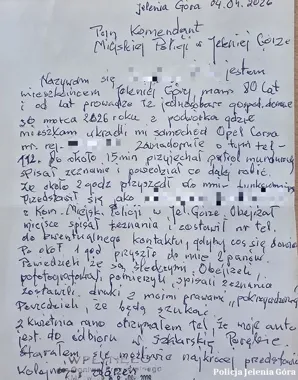 Jelenia Góra 04.04.2026
Pan Komendant
Miejskiej Policji w Jeleniej Górze
Nazywam się jestem
mieszkańcem Jeleniej Góry, mam 80 lat
i od lat prowadzę 1z jednoosobowe gospodarstwo
marca 2026 roku z podwórka gdzie
mieszkam ukradli mi samochód Opel Corsa
nr. rej. Zawiadomiłem o tym tel.
112. po około 15 min przyjechał patrol mundurowy
spisał zeznanie i powiedział co dalej robić.
Za około 2 godz przyszedł do mnie funkcjonariusz
Przedstawił się jako
z Kom. Miejsk. Policji w Jel. Górze. Obejrzał
miejsce spisał zeznania i zostawił nr tel.
do ewentualnego kontaktu, gdybym coś się dowie
Po okol. godz przyszło do mnie 2 panów
Powiedzieli że są śledczymi. Obejrzeli
pofotografowali, pomierzyli, spisali zeznania
zostawili druki z moimi prawami "pokrzywdzonego"
Powiedzieli, że będą szukać
2 kwietnia rano otrzymałem tel, że moje auto
jest do odbioru w Szklarskiej Porębie.
Starałem się możliwie najkrócej przedstawić
Kolejne
Policja Jelenia Góra